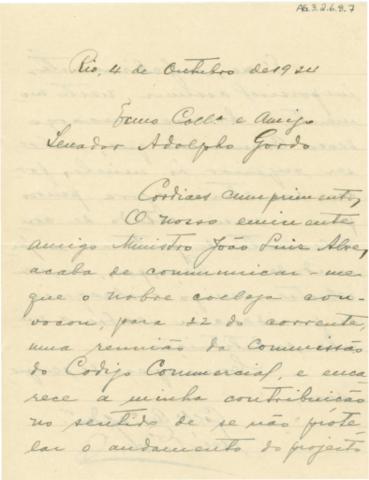 AG.3.2.6.9.7
Rio, 4 de Outubro de 1924
Exmo Collª e Amigo
Senador Adolpho Gordo
Cordiaes cumprimentos,
O nosso eminente
amigo Ministro João Luiz Alves,
acaba de communicar-me
que o nobre collega con-
vocou, para 22 do corrente,
uma reunião da Commissão
do Codigo Commercial, e enca
rece a minha contribuição
no sentido de se não prote-
lar o andamento do projecto